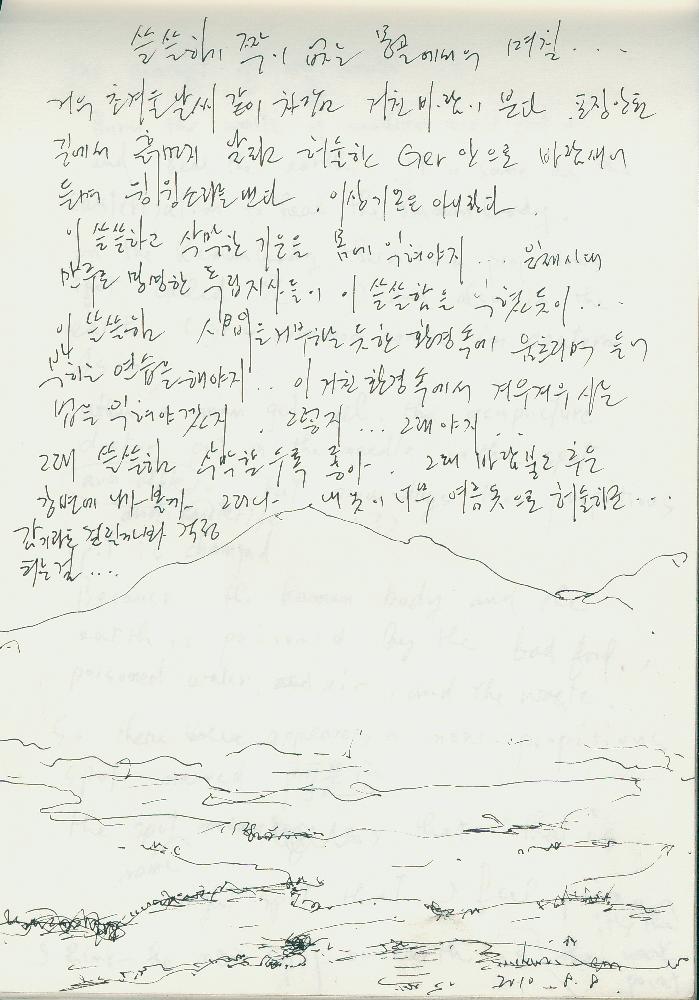 쓸쓸하기 짝이 없는 몽골에서의 며칠...
거의 초겨울 날씨 같이 차갑고 거친 바람이 분다. 포장안된
길에서 흙먼지 날리고 허술한 Ger 안으로 바람새어
들며 윙윙소리를 낸다. 이상기온은 아니란다.
이 쓸쓸하고 삭막한 기운을 몸에 익혀야지... 일제시대
만주로 망명한 독립지사들이 이 쓸쓸함을 익혔듯이...
이 쓸쓸함 거부하는 듯한 환경속에 움츠리며 들어
박히는 연습을 해야지.. 이 거친 환경속에서 겨우겨우 사는
법을 익혀야겠지. 그렇지... 그래야지.
그래 쓸쓸하고 삭막할수록 좋아. 그래 바람불고 추운
강변에 나가볼까 그러나 내 옷이 너무 여름옷으로 허술하군...
감기라도 걸릴까봐 걱정
되는걸....
2010. 8. 8